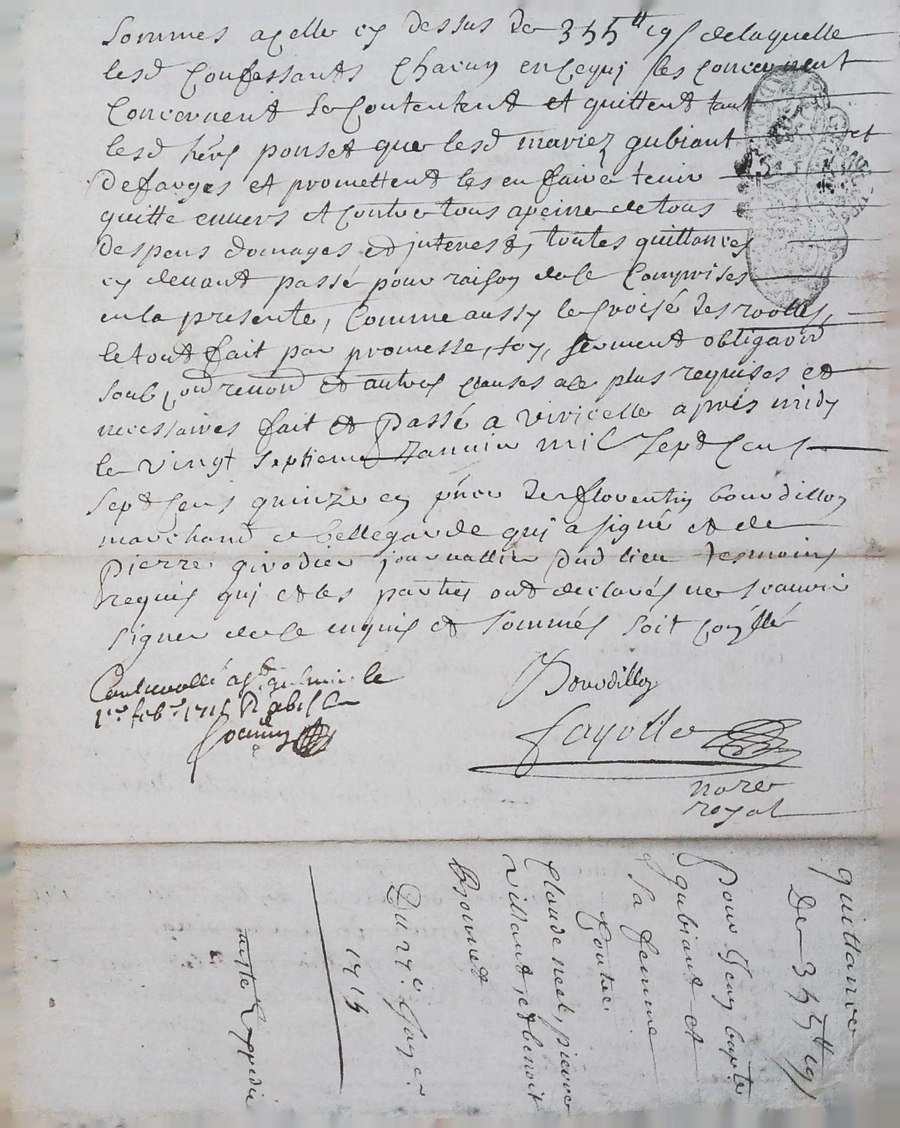 Sommes a celle cy dessus de 355tt 19s de laquelle
lesd Confessants Chacun en ce qui les concernent
Concernent se Contentent et quittent tant
lesd hérs ponset que lesd mariez gubiant et
defarges et promettent les en faire tenir
quitte envers et contre tous a peine de tous
despens domages et interest, toutes quittances
cy devant passé pour raison de ce Comprises
en la presente, Comme aussy le croisé des roolles,
le tout fait par promesse, foy, serment obligaon
soub, et autres clauses a ce plus requises et
necessaires fait et Passé a viricelle apres midy
le vingt septieme Janvier mil Sept Cens
sept Cens quinze en pnce de florentin bourdillon
marchand de bellegarde qui a signé et de
Pierre girodier journallier dud lieu tesmoins
requis qui et les parties ont declarés ne scavoir
signer de ce enquis et sommés soit Conllé
Bourdillon
Fayolle
nore
royal
1er feb 1715 R
quittance
De 355tt 19s
pour Jean bapte
gubiant et
sa femme
Contre
Claude neel, pierre
villant, et benoit
Bonnet
Du 27e Janer
1715